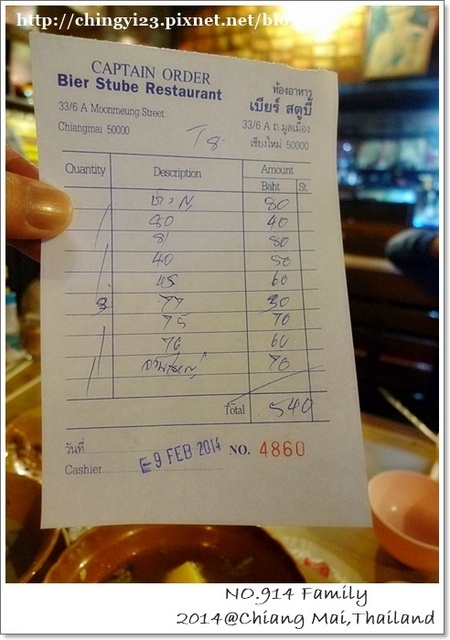 http://chingyi23.pixnet.net/blo
CAPTAIN ORDER
Bier Stube Restaurant
33/6 A Moonmeung Street
Chiangmai 50000
ห้องอาหาร
เบียร์ สตูบี้
33/6 A ถ.มูลเมือง
เชียงใหม่ 50000
T8
Quantity Description Amount
Baht St.
80
50 40
81 80
40 50
45 60
3 77 30
75 70
76 60
70
Total 540
วันที่ 9 FEB 2014 NO. 4860
Cashier
NO.914 Family
2014@Chiang Mai,Thailand